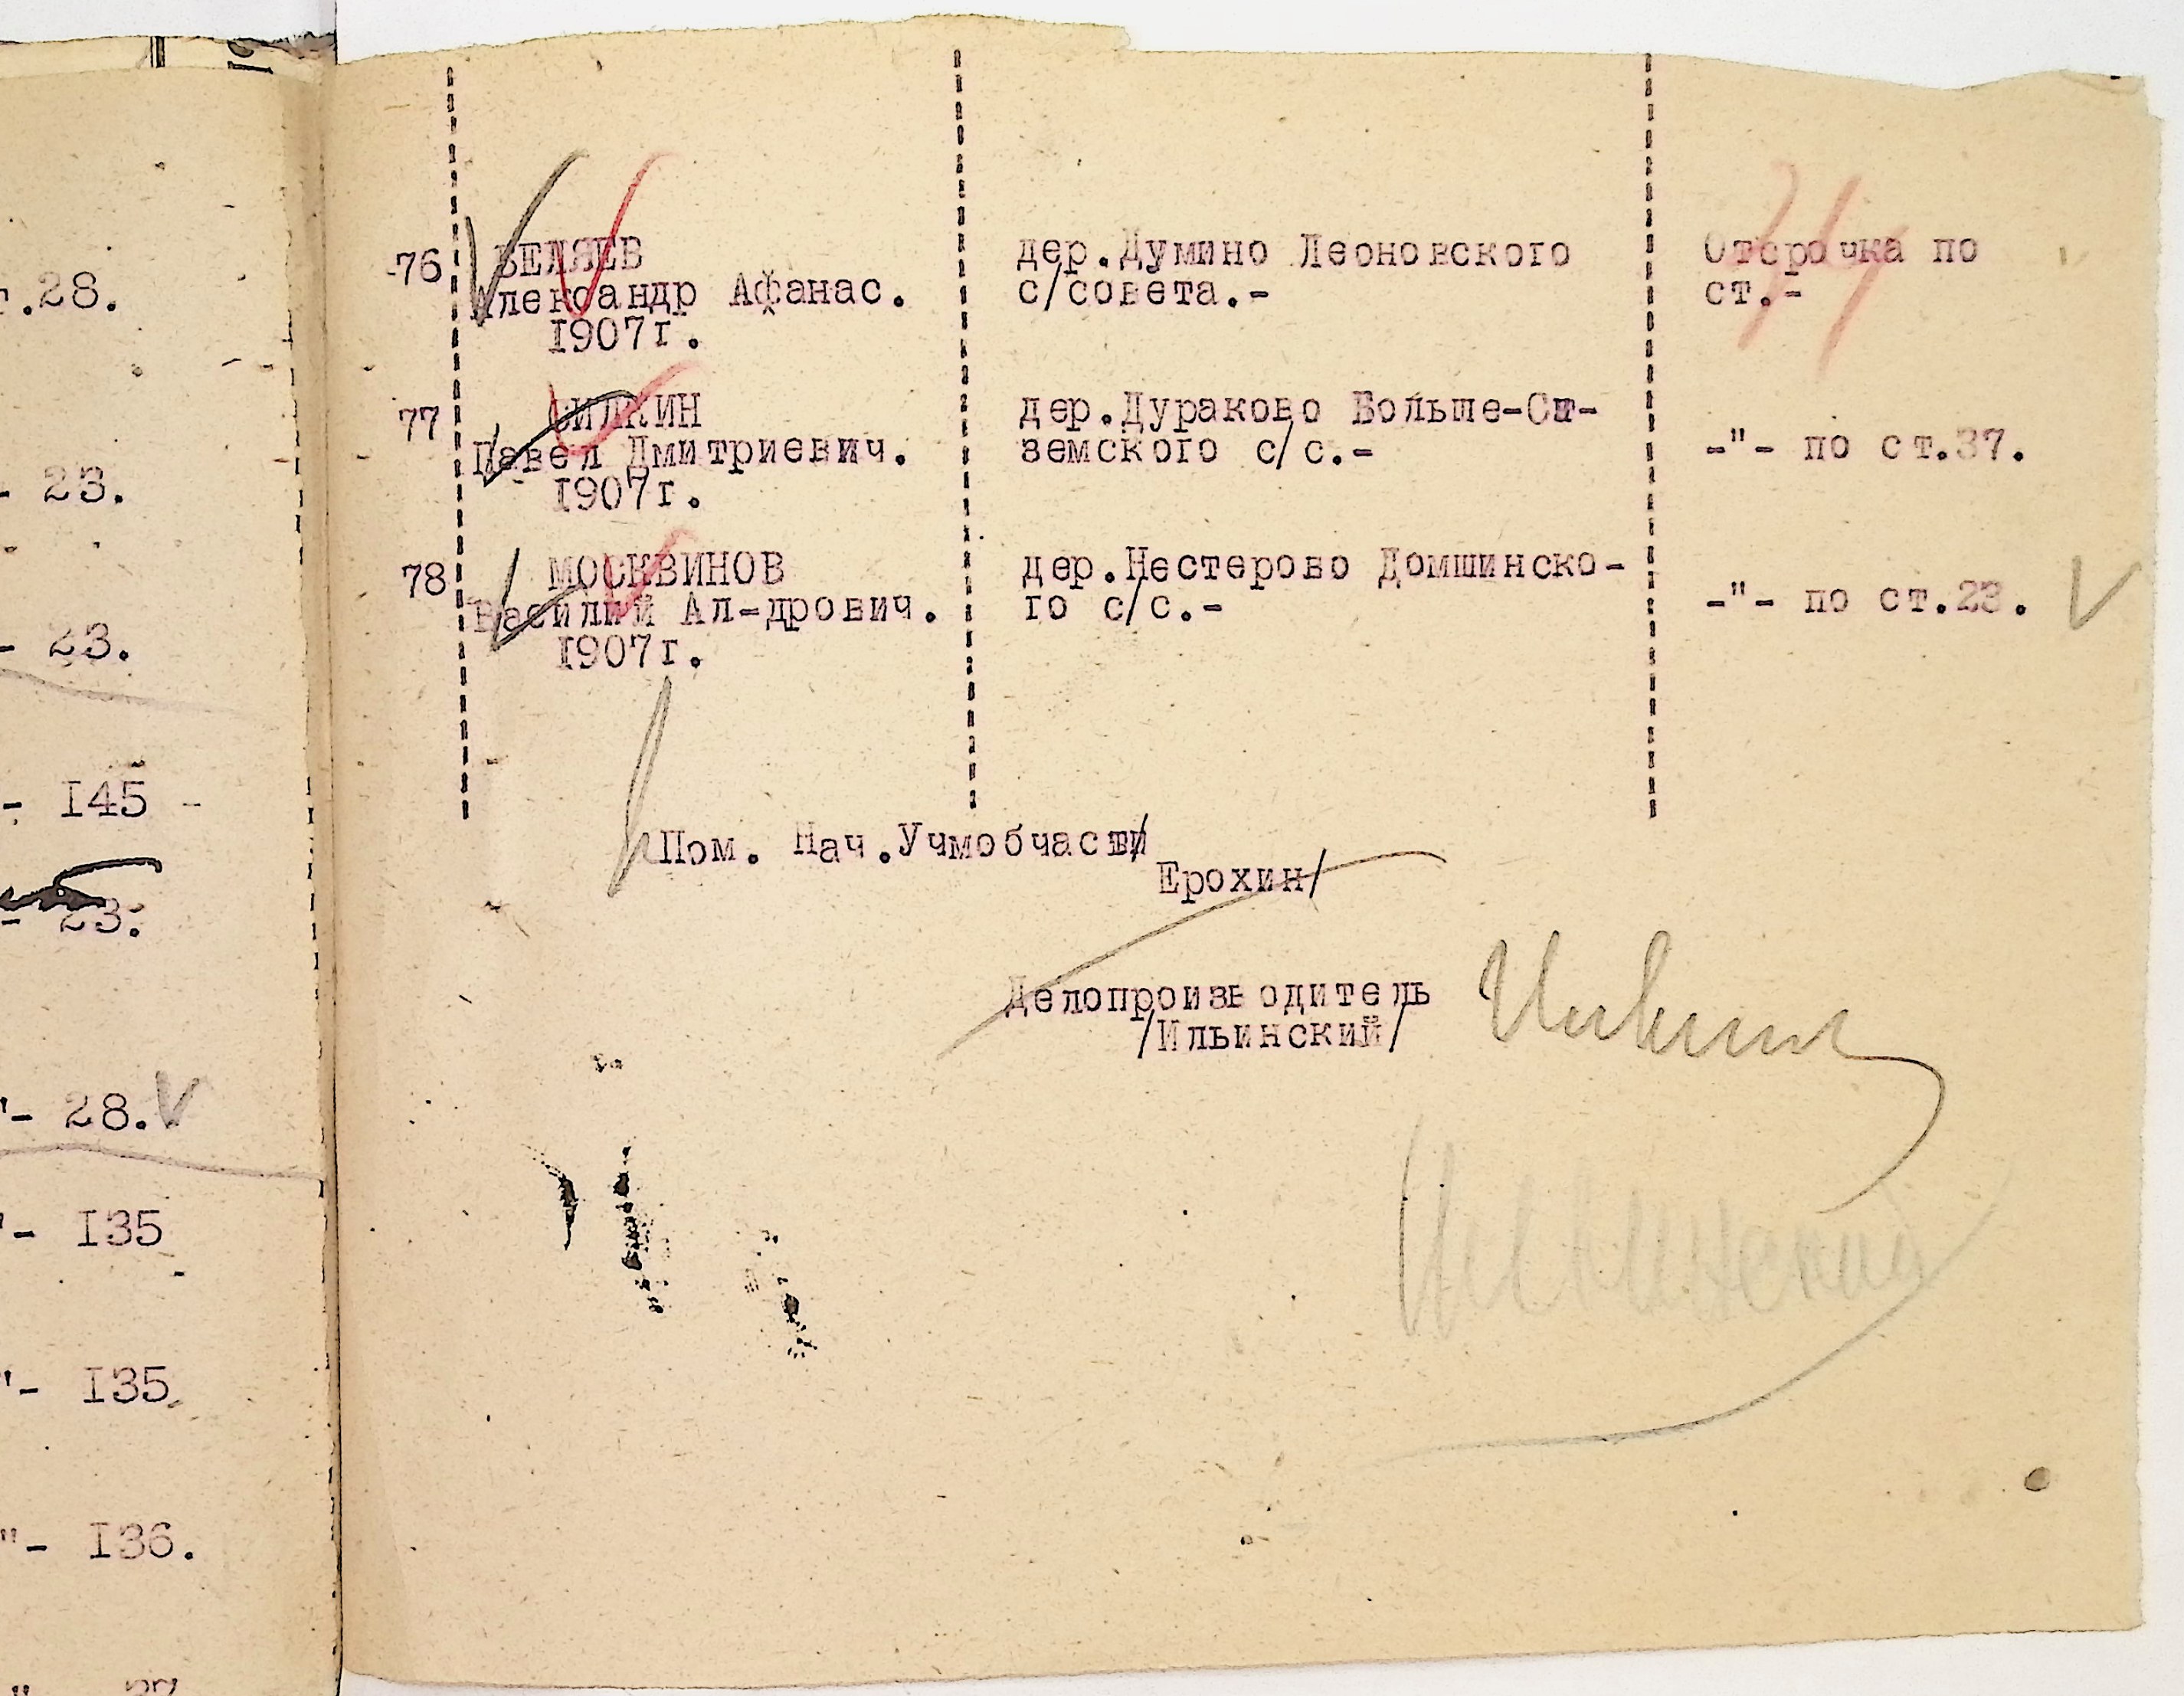 т.28.
- 23.
- 23.
- I45 -
- 23.
"- 28.
"- I35
"- I35
"- I36.
76 БЕЛЯЕВ
Александр Афанас.
I907г.
дер.Думино Леоновского
с/совета.-
Отсрочка по
ст.-
77 СИЛКИН
Павел Дмитриевич.
I907г.
дер.Дураково Больше-Си-
земского с/с.-
-"- по ст.37.
78 МОСКВИНОВ
Василий Ал-дрович.
I907г.
дер.Нестерово Домшинско-
го с/с.-
-"- по ст.23.
Пом. Нач.Учмобчасти/
Ерохин/
Делопроизводитель
/Ильинский/
Ильинский